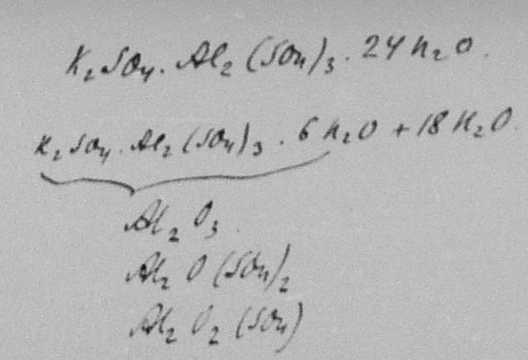 K₂SO₄ · Al₂(SO₄)₃ · 24 H₂O.
K₂SO₄ · Al₂(SO₄)₃ · 6 H₂O + 18 H₂O.
Al₂O₃.
Al₂O(SO₄)₂
Al₂O₂(SO₄)